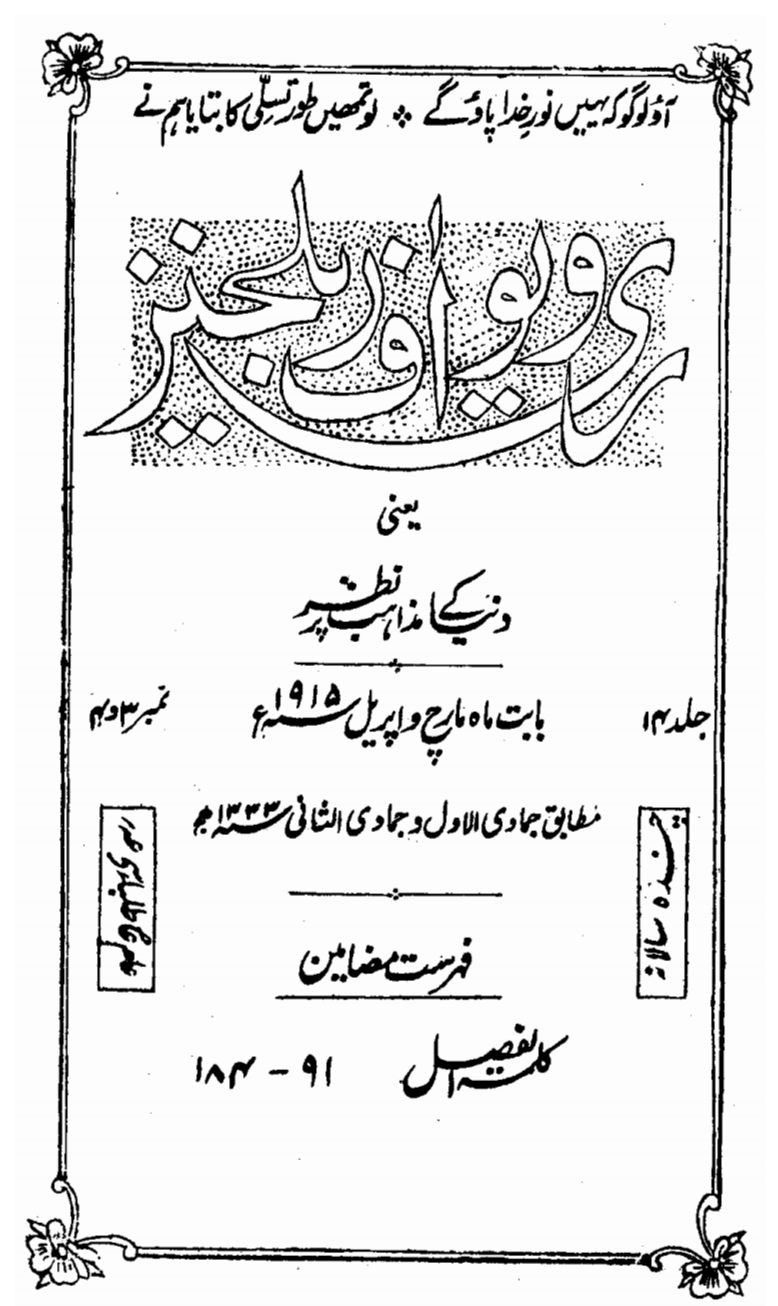 آؤ لوگو کہ یہیں نورِ خدا پاؤ گے ❖ لو تمھیں طور تسلّی کا بتایا ہم نے
ریویو آف ریلیجنز
یعنی
دنیا کے مذاہب پر نظر
جلد ۱۴
بابت ماہ مارچ و اپریل سنہ ۱۹۱۵ء
نمبر ۳ و ۴
مطابق جمادی الاول و جمادی الثانی سنہ ۱۳۳۳ھ
چندہ سالانہ
فہرست مضامین
کلمۃ الفصل ۹۱ – ۱۸۴